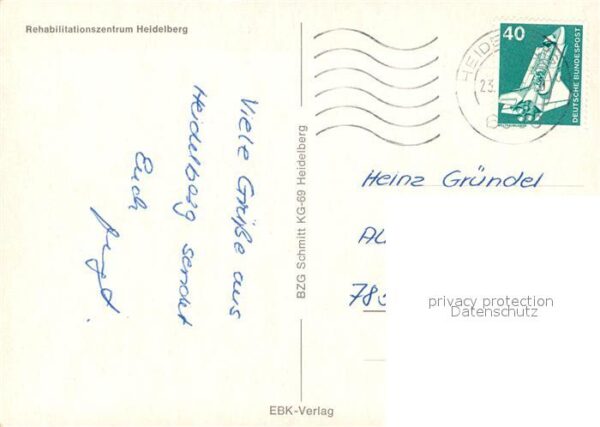 Rehabilitationszentrum Heidelberg
Viele Grüße aus
Heidelberg sendet
Euch
BZG Schmitt KG-69 Heidelberg
EBK-Verlag
40
DEUTSCHE BUNDESPOST
HEIDE
23.
Heinz Gründel
AL
780
privacy protection
Datenschutz